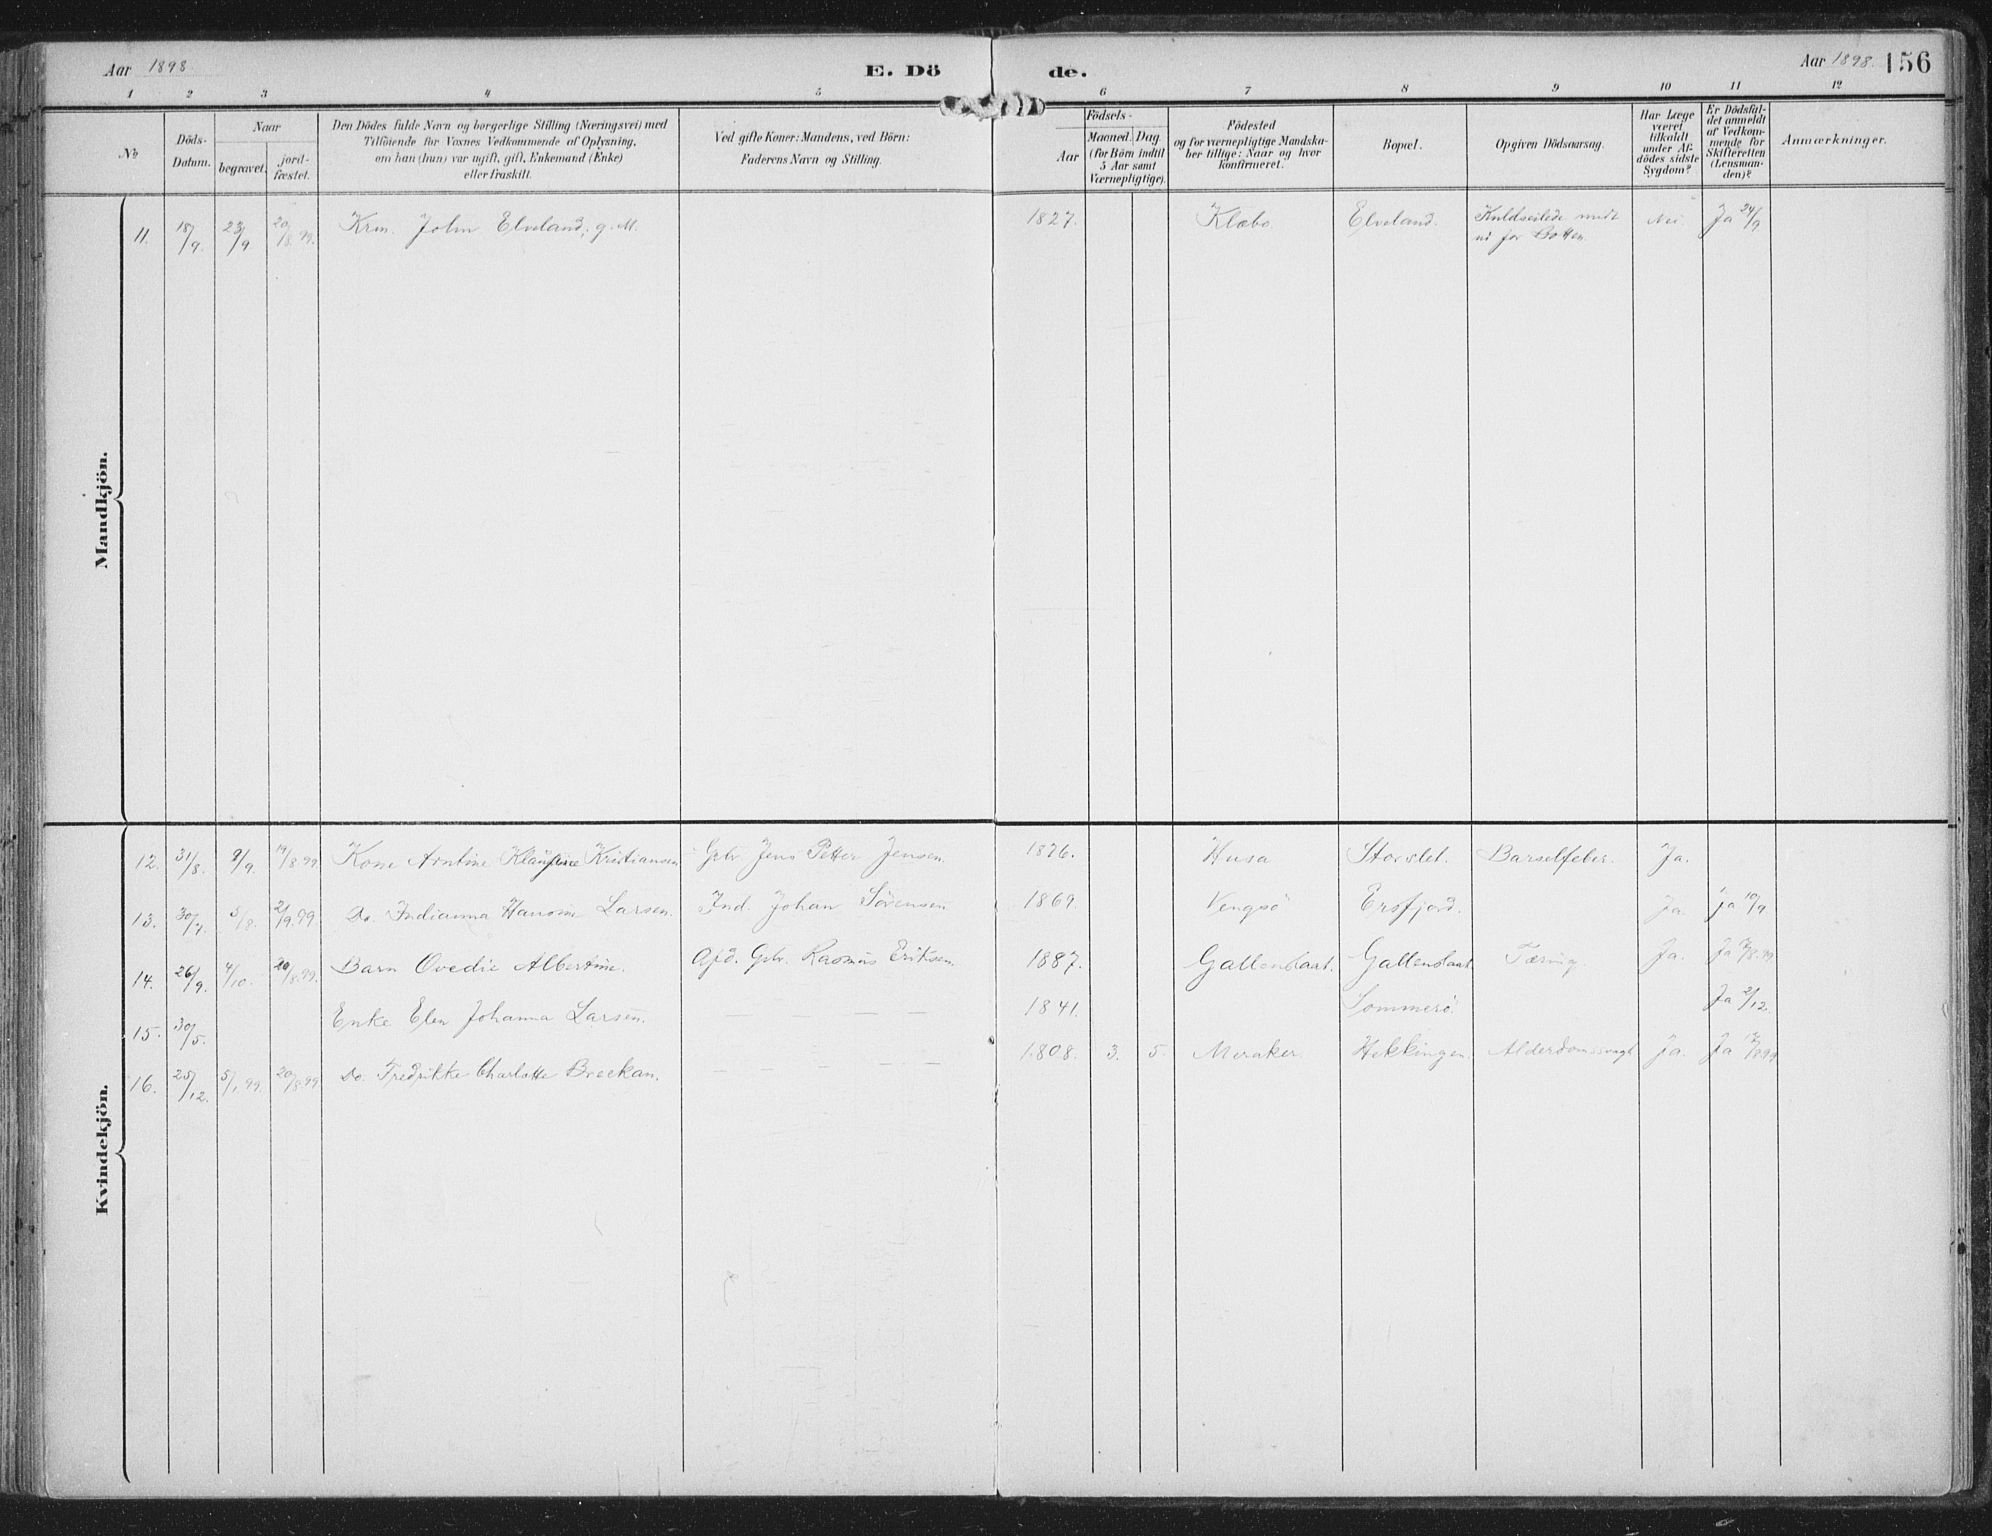 Aar 1898
E. Dö
de.
Aar 1898. 156
1 2 3 4 5 6 7 8 9 10 11 12
No
Döds-
Datum.
Naar
begravet.
jord-
fæstet.
Den Dödes fulde Navn og borgerlige Stilling (Næringsvei) med
Tilföiende for Voxnes Vedkommende af Oplysning,
om han (hun) var ugift, gift, Enkemand (Enke)
eller fraskilt.
Ved gifte Koner: Mandens, ved Börn:
Faderens Navn og Stilling.
Födsels-
Aar
Maaned. Dag
(for Börn indtil
5 Aar samt
Værnepligtige).
Födested
og for værnepligtige Mandska-
ber tillige: Naar og hvor
konfirmeret.
Bopæl.
Opgiven Dödsaarsag.
Har Læge
været
tilkaldt
under Af-
dödes sidste
Sygdom?
Er Dödsfal-
det anmeldt
af Vedkom-
mende for
Skifteretten
(Lensman-
den)?
Anmærkninger.
Mandkjön.
11. 18/9. 23/9. 20/8.99. Krm. John Elveland, g. M. 1827. Klæbo Elveland. Kuldseilede midt Nei. Ja 24/9
ud for Botten.
Kvindekjön.
12. 31/8. 9/9. 19/8.99 Kone Arntine Klausine Kristiansen Gbr. Jens Petter Jensen. 1876. Husa Storslet. Barselfeber. Ja.
13. 30/7. 5/8. 21/9.99. Do. Indianna Hansine Larsen. Ind. Johan Sörensen 1869. Vengsö Ersfjord. Ja. Ja 10/9
14. 26/9. 4/10. 20/8.99. Barn Ovedie Albertine. Afd. Gbr. Rasmus Eriksen. 1887. Gallenslaat. Gallenslaat Tæring Ja. Ja
15. 30/5. Enke Elen Johanna Larsen. — — — — 1841. Sommerö Ja 2/12.
16. 25/12. 5/1 99. 20/8 99 Do. Fredrikke Charlotte Breckan. — — — — 1808. 3. 5. Meraker. Hekkingen. Alderdomssvagh. Ja. Ja